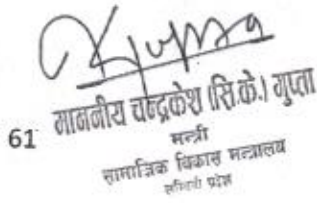 KGupta
61 माननीय चन्द्रकेश (सि.के.) गुप्ता
मन्त्री
सामाजिक विकास मन्त्रालय
लुम्बिनी प्रदेश